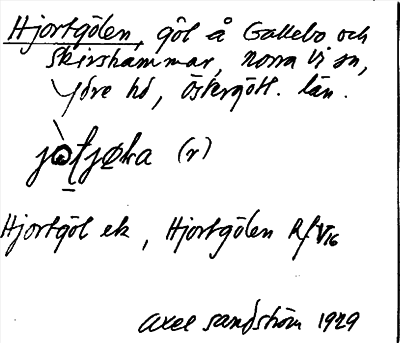 Hjortgölen, göl å Gallebo och
Skirshammar, norra Vi sn,
Ydre hd, Östergötl. län.
(r)
Hjortgöl ek, Hjortgölen Rf V 16
Axel Sandström 1929